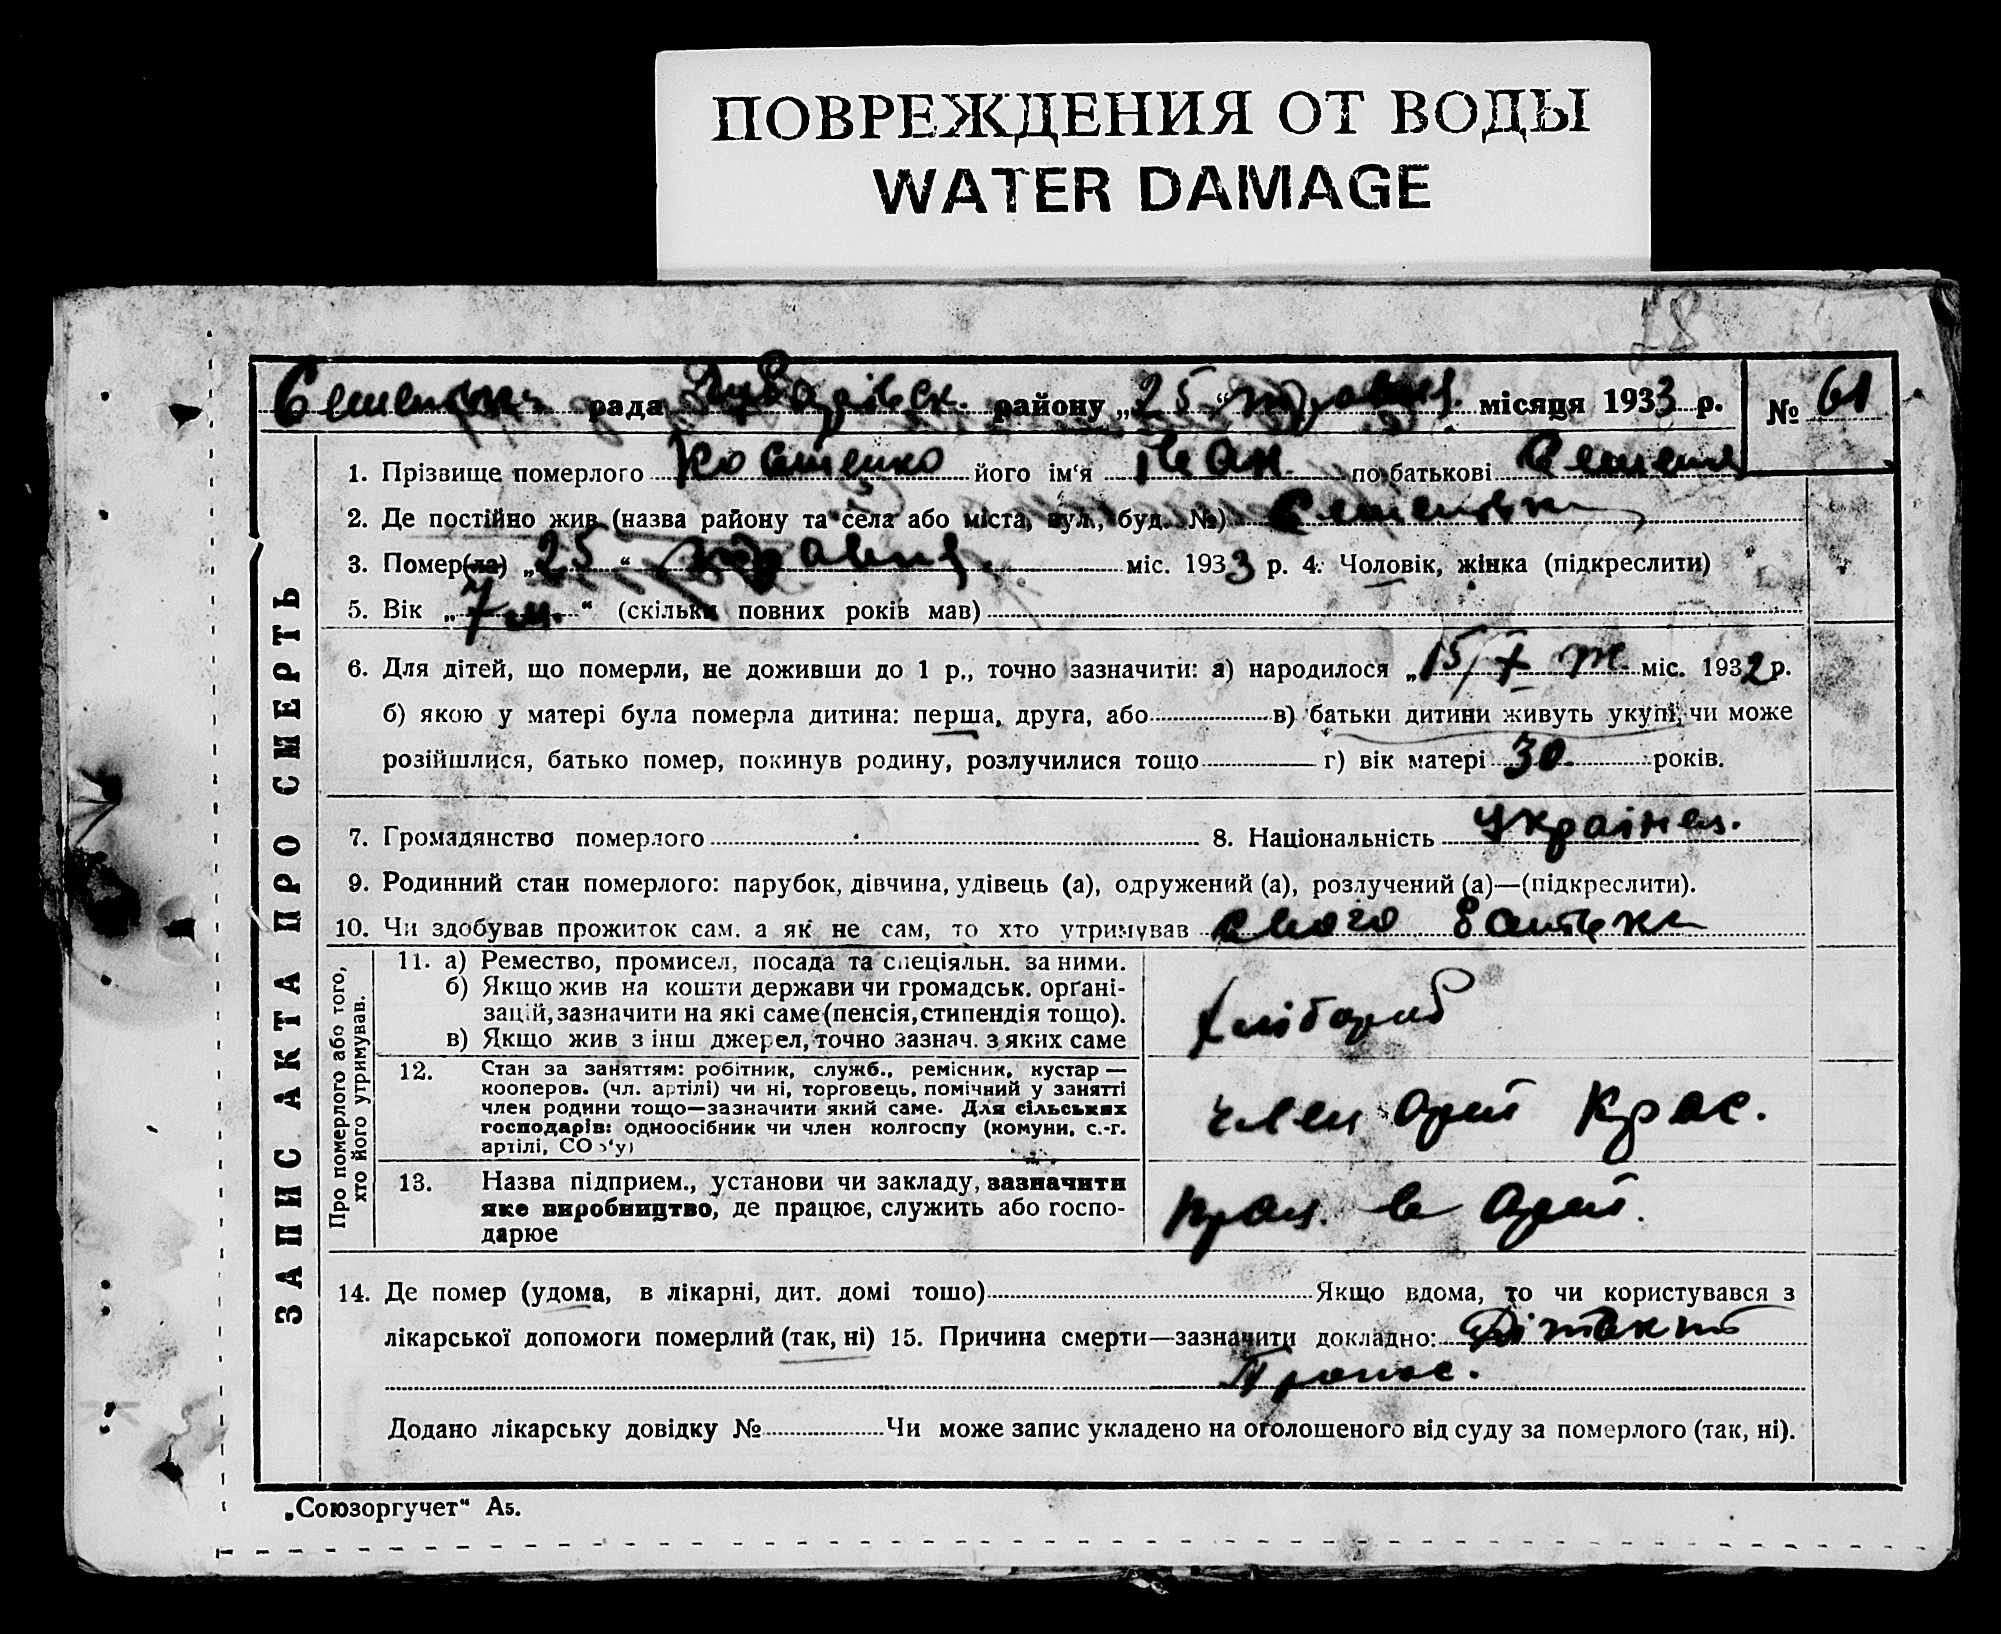 ПОВРЕЖДЕНИЯ ОТ ВОДЫ
WATER DAMAGE
рада район у „25“ травня місяця 1933 р. № 61
1. Прізвище померлого Костенко його ім‘я Іван по батькові Семенов
2. Де постійно жив (назва району та села або міста, вул., буд. №)
3. Помер(ла) „25“ травня міс. 1933 р. 4. Чоловік, жінка (підкреслити)
5. Вік „7 м.“ (скільки повних років мав)
6. Для дітей, що померли, не доживши до 1 р., точно зазначити: а) народилося „15/X м-міс. 1932 р.
б) якою у матері була померла дитина: перша, друга, або в) батьки дитини живуть укупі, чи може
розійшлися, батько помер, покинув родину, розлучилися тощо г) вік матері 30 років.
7. Громадянство померлого 8. Національність Українец.
9. Родинний стан померлого: парубок, дівчина, удівець (а), одружений (а), розлучений (а)—(підкреслити).
10. Чи здобував прожиток сам. а як не сам, то хто утримував свого батька
ЗАПИС АКТА ПРО СМЕРТЬ
Про померлого або того,
хто його утримував.
11. а) Ремество, промисел, посада та спеціяльн. за ними.
б) Якщо жив на кошти держави чи громадськ. орґані-
зацій, зазначити на які саме (пенсія, стипендія тощо).
в) Якщо жив з інш джерел, точно зазнач. з яких саме
хлібороб
12. Стан за заняттям: робітник, служб., ремісник, кустар —
кооперов. (чл. артілі) чи ні, торговець, помічний у занятті
член родини тощо—зазначити який саме. Для сільських
господарів: одноосібник чи член колгоспу (комуни, с.-г.
артілі, СОЗ‘у)
член арті Крас.
13. Назва підприєм., установи чи закладу, зазначити
яке виробництво, де працює, служить або госпо-
дарює
прац. в арті.
14. Де помер (удома, в лікарні, дит. домі тошо) Якщо вдома, то чи користувався з
лікарської допомоги померлий (так, ні) 15. Причина смерти—зазначити докладно:
Додано лікарську довідку № Чи може запис укладено на оголошеного від суду за померлого (так, ні).
„Союзоргучет“ А5.